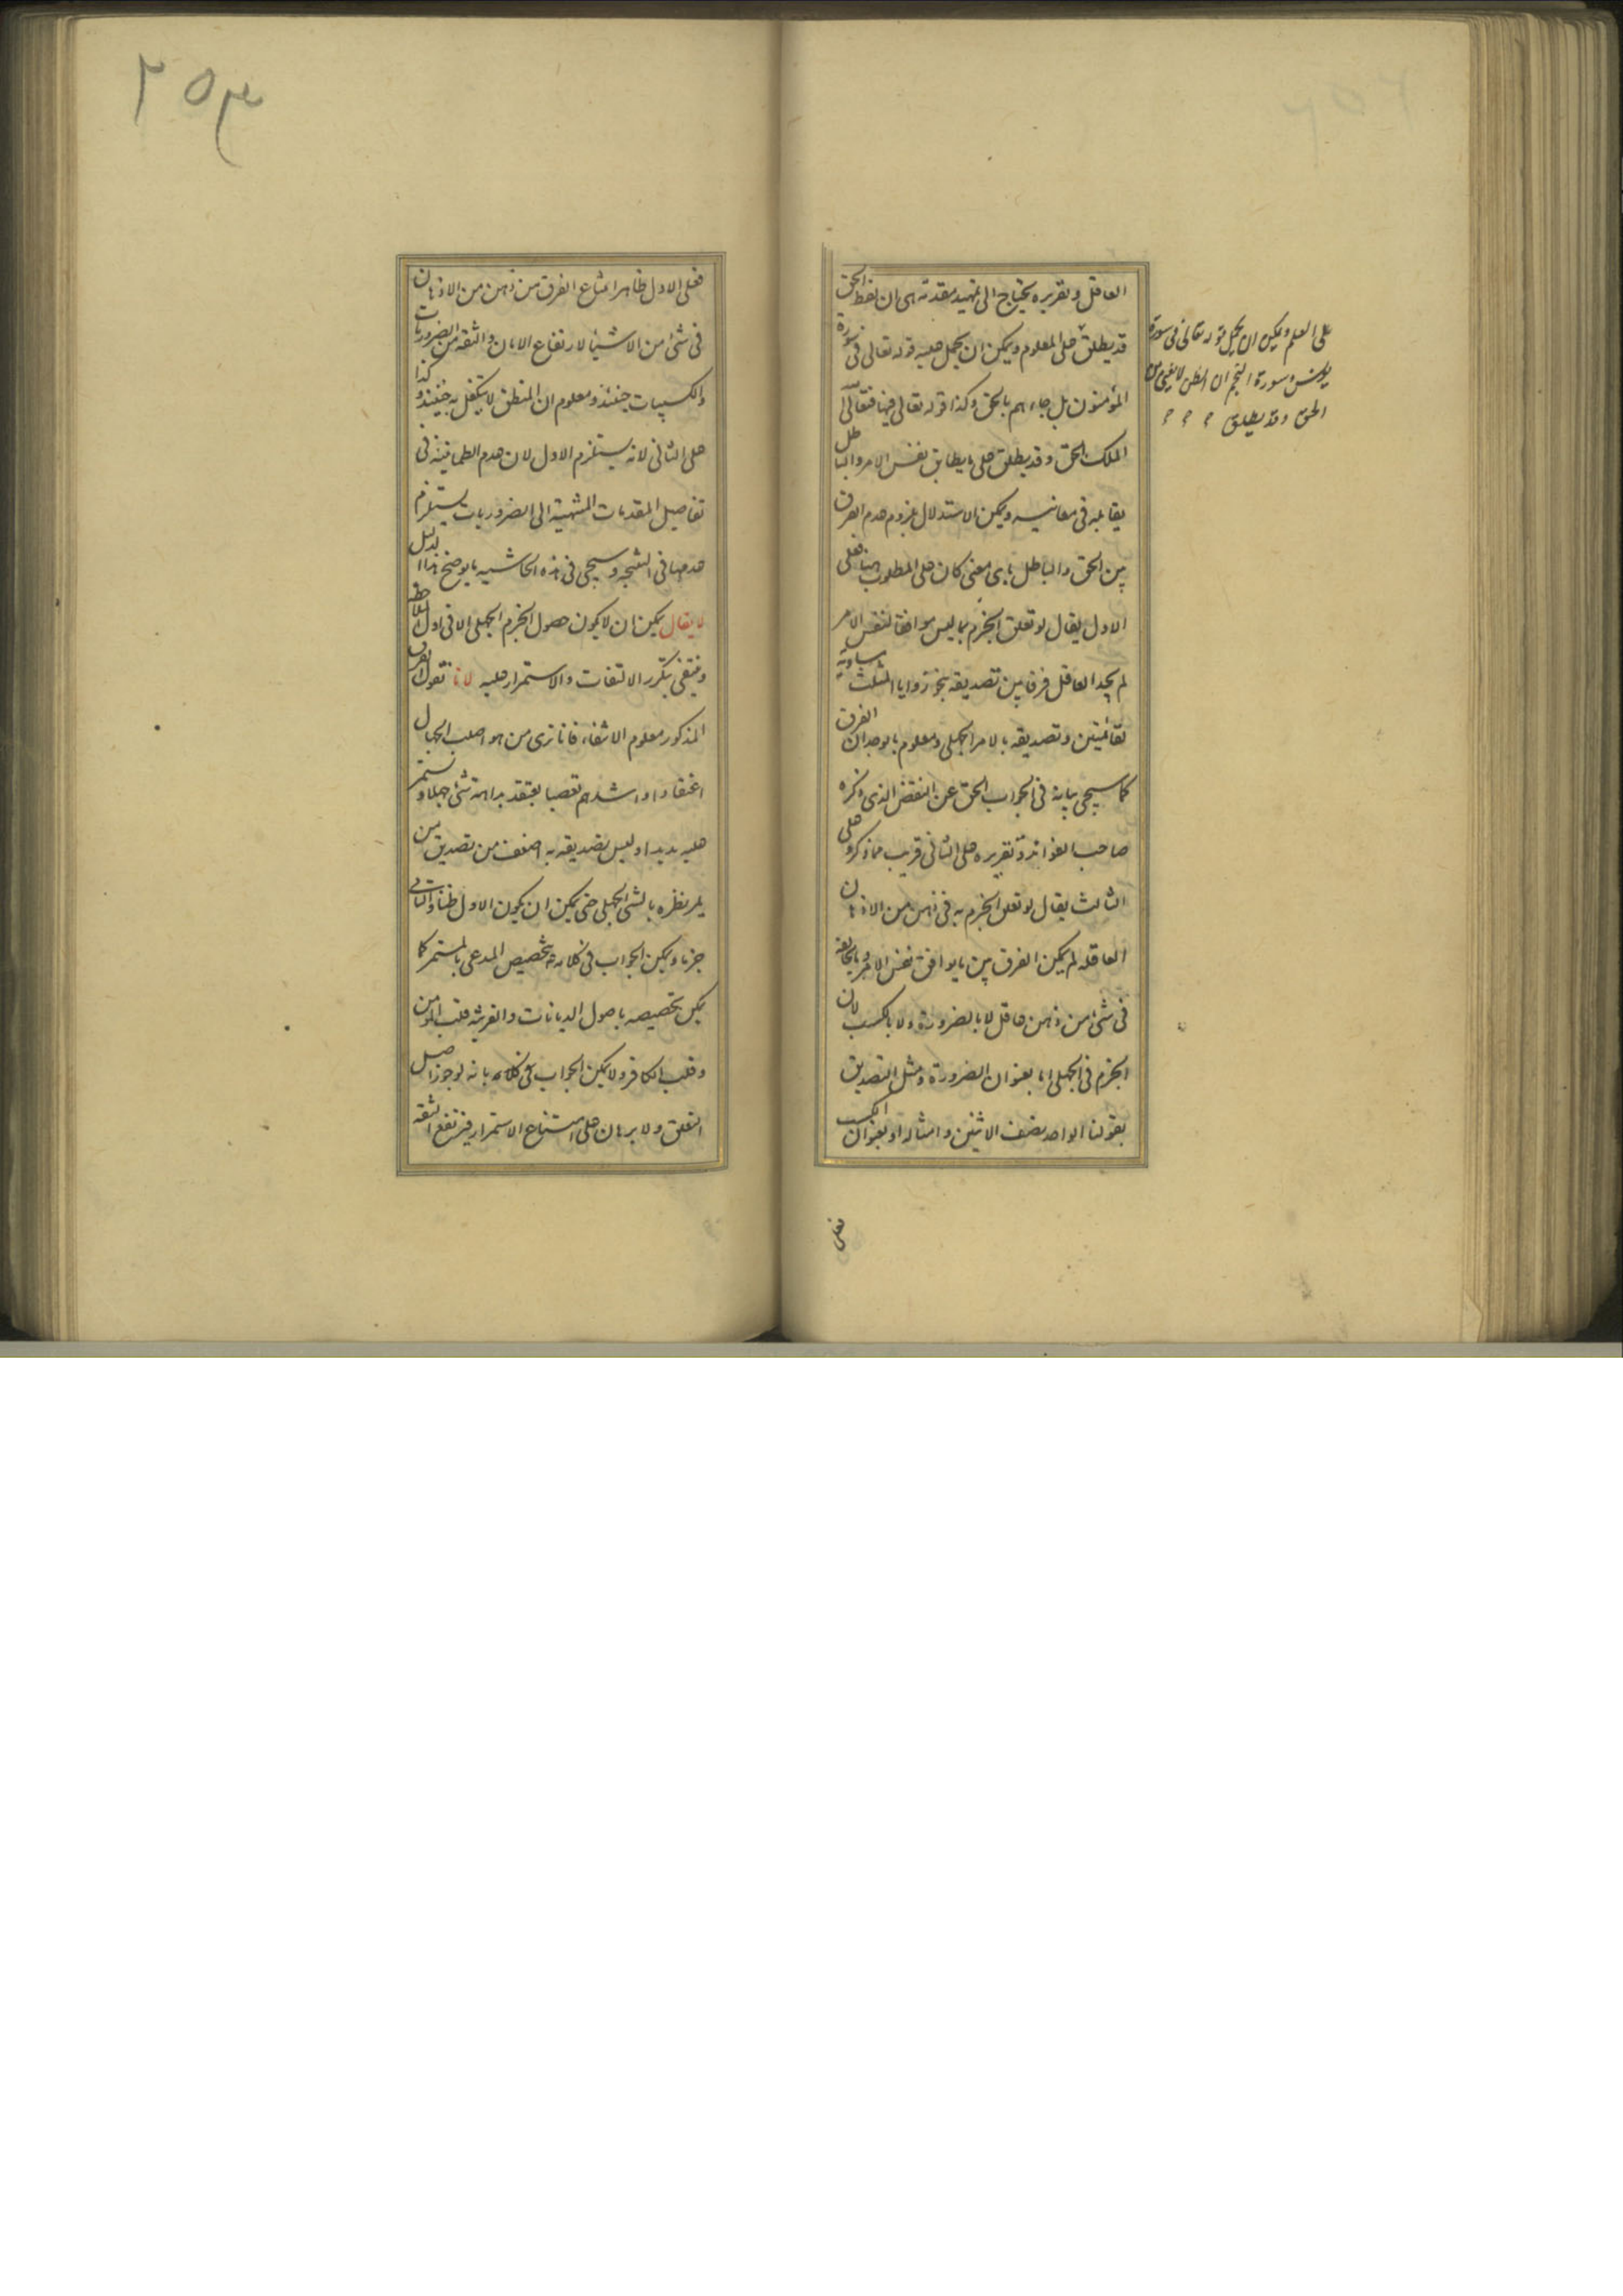 العاقل وتقريره يحتاج الى تمهيد مقدمة هى ان لفظ الحق
قد يطلق على المعلوم ويمكن ان يحمل عليه قوله تعالى فى سورة
المؤمنون بل جاءهم بالحق وكذا قوله تعالى فيها فتعالى
الملك الحق وقد يطلق على ما يطابق نفس الامر والباطل
يقابله فى معانيه ويمكن الاستدلال بلزوم عدم الفرق
بين الحق والباطل باى معنى كان على المطلوب هنا فعلى
الاول يقال لو تعلق الجزم بما ليس موافقا لنفس الامر
لم يجد العاقل فرقا بين تصديقه بنحو زوايا المثلث مساوية
لقائمتين وتصديقه بالامر الجهلى ومعلوم بالوجدان الفرق
كما سيجى بيانه فى الجواب الحق عن النقض الذى ذكره
صاحب الفوائد وتقريره على الثانى قريب مما ذكر وعلى
الثالث يقال لو تعلق الجزم به فى ذهن من الاذهان
العاقلة لم يمكن الفرق بين ما يوافق نفس الامر وما يخالفه
فى شئ من ذهن عاقل لا بالضرورة ولا بالكسب لان
الجزم فى الجهلى اما بعنوان الضرورة ومثل التصديق
بقولنا الواحد نصف الاثنين وامثاله او بعنوان الكسب
فعلى
على العلم ويمكن ان يحمل قوله تعالى فى سورة
يونس وسورة النجم ان الظن لا يغنى من
الحق وقد يطلق
٢٥٣
فعلى الاول ظاهر امتناع الفرق من ذهن من الاذهان
فى شئ من الاشياء لارتفاع الامان والثقة من الضروريات
والكسبيات حينئذ ومعلوم ان المنطق لا يتكفل به حينئذ وكذا
على الثانى لانه يستلزم الاول لان عدم الطمانينة فى
تفاصيل المقدمات المنتهية الى الضروريات يستلزم
عدمها فى النتيجة وسيجى فى هذه الحاشية ما يوضح هذا الدليل
لا يقال يمكن ان لا يكون حصول الجزم الجهلى الا فى اول الملاحظة
وينتفى بتكرر الالتفات والاستمرار عليه لانا نقول الفرق
المذكور معلوم الانتفاء فانا نرى من هو اصلب الجهال
اعتقادا واشدهم تعصبا يعتقد بداهة شئ جهلا ويستمر
عليه مديدا وليس تصديقه به اضعف من تصديق من
يمر نظره بالشئ الجهلى حتى يمكن ان يكون الاول ظنا والثانى
جزما ويمكن الجواب فى كلامه بتخصيص المدعى بالمستمر كما
يمكن تخصيصه باصول الديانات والقرينة قلب المومن
وقلب الكافر ولا يمكن الجواب فى كلامه بانه لو جوز اصل
التعلق ولا برهان على امتناع الاستمرار فيرتفع الثقة